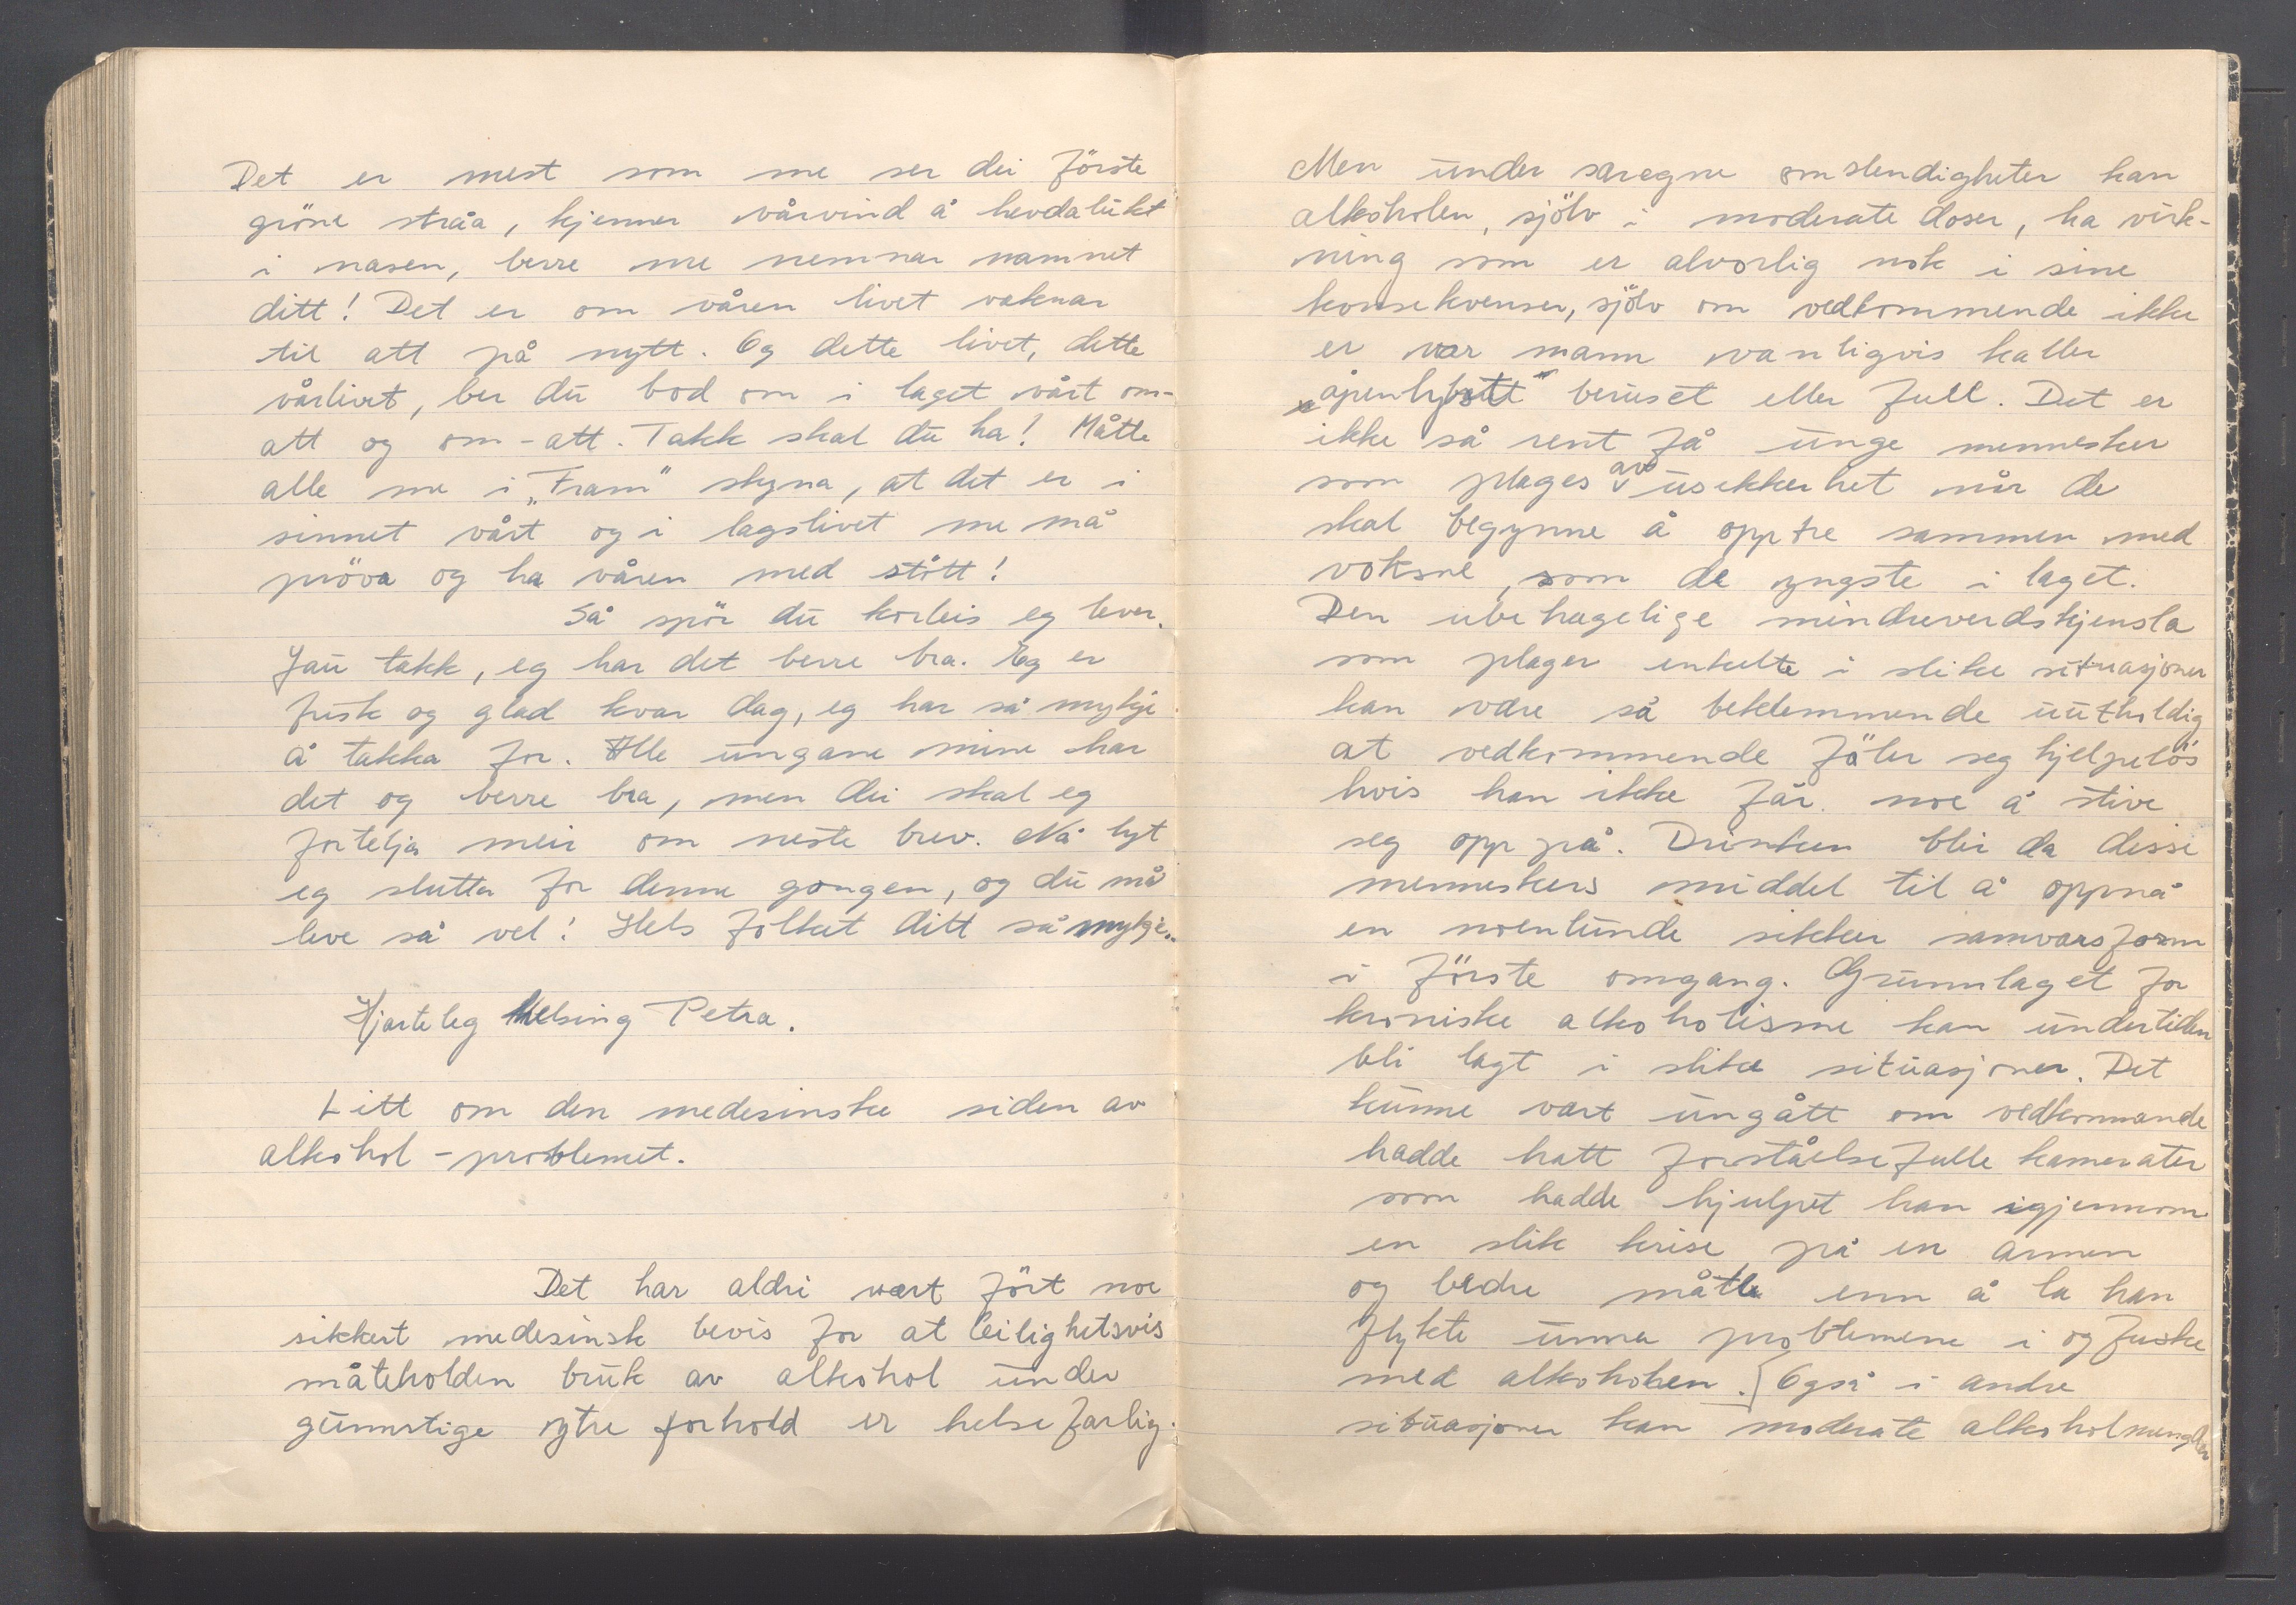 Det er mest som me ser dei förste
gröne stråa, kjenner vårvind å hevdalukt
i nasen, berre me nemnar namnet
ditt! Det er om våren livet vaknar
til att på nytt. Og dette livet, dette
vårlivet, ber du bod om i laget vårt om-
att og om-att. Takk skal du ha! Måtte
alle me i „Fram" skyna, at det er i
sinnet vårt og i lagslivet me må
pröva og ha våren med stött!
Så spör du korleis eg lever.
Jau takk, eg har det berre bra. Eg er
frisk og glad kvar dag, eg har så mykje
å takka for. Alle ungane mine har
det og berre bra, men dei skal eg
fortelja meir om neste brev. Nå lyt
eg slutta for denne gongen, og du må
leve så vel! Hels folket ditt så mykje..
Hjarteleg Helsing Petra.
Litt om den medesinske siden av
alkohol-problemet.
Det har aldri vært fört noe
sikkert medesinsk bevis for at leilighetsvis
måteholden bruk av alkohol under
gunnstige ytre forhold er helsefarlig.
Men under særegne omstendigheter kan
alkoholen, sjölv i moderate doser, ha virk-
ning som er alvorlig nok i sine
konsekvenser, sjölv om vedkommende ikke
er var mann vanligvis kaller
beruset eller full. Det er
ikke så rent få unge mennesker
som plages av usikkerhet når de
skal begynne å opptre sammen med
voksne, som de yngste i laget.
Den ubehagelige mindreverdskjensla
som plager enkelte i slike situasjoner
kan være så beklemmende uutholdig
at vedkommende föler seg hjelpelös
hvis han ikke får noe å stive
seg opp på. Drinken blir da disse
menneskers middel til å oppnå
en noenlunde sikker samværsform
i förste omgang. Grunnlaget for
kroniske alkoholisme kan undertiden
bli lagt i slike situasjoner. Det
kunne vært ungått om vedkommande
hadde hatt forståelsefulle kamerater
som hadde hjulpet han igjennom
en slik krise på en annen
og bedre måtte enn å la han
flykte unna problemene i og fuske
med alkoholen. [Også i andre
situasjoner kan moderate alkoholmengder